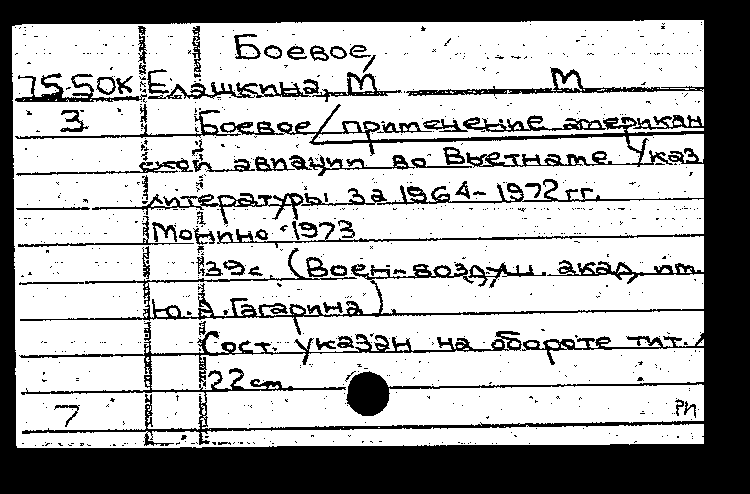 Боевое,
75-50К Елашкина, М М
3 Боевое / применение американ
ской авиации во Вьетнаме. Указ.
литературы за 1964-1972 гг.
Монино, 1973
39с. (Воен-воздуш. акад. им.
Ю.А.Гагарина).
Сост. указан на обороте тит.
22см.
7 РП